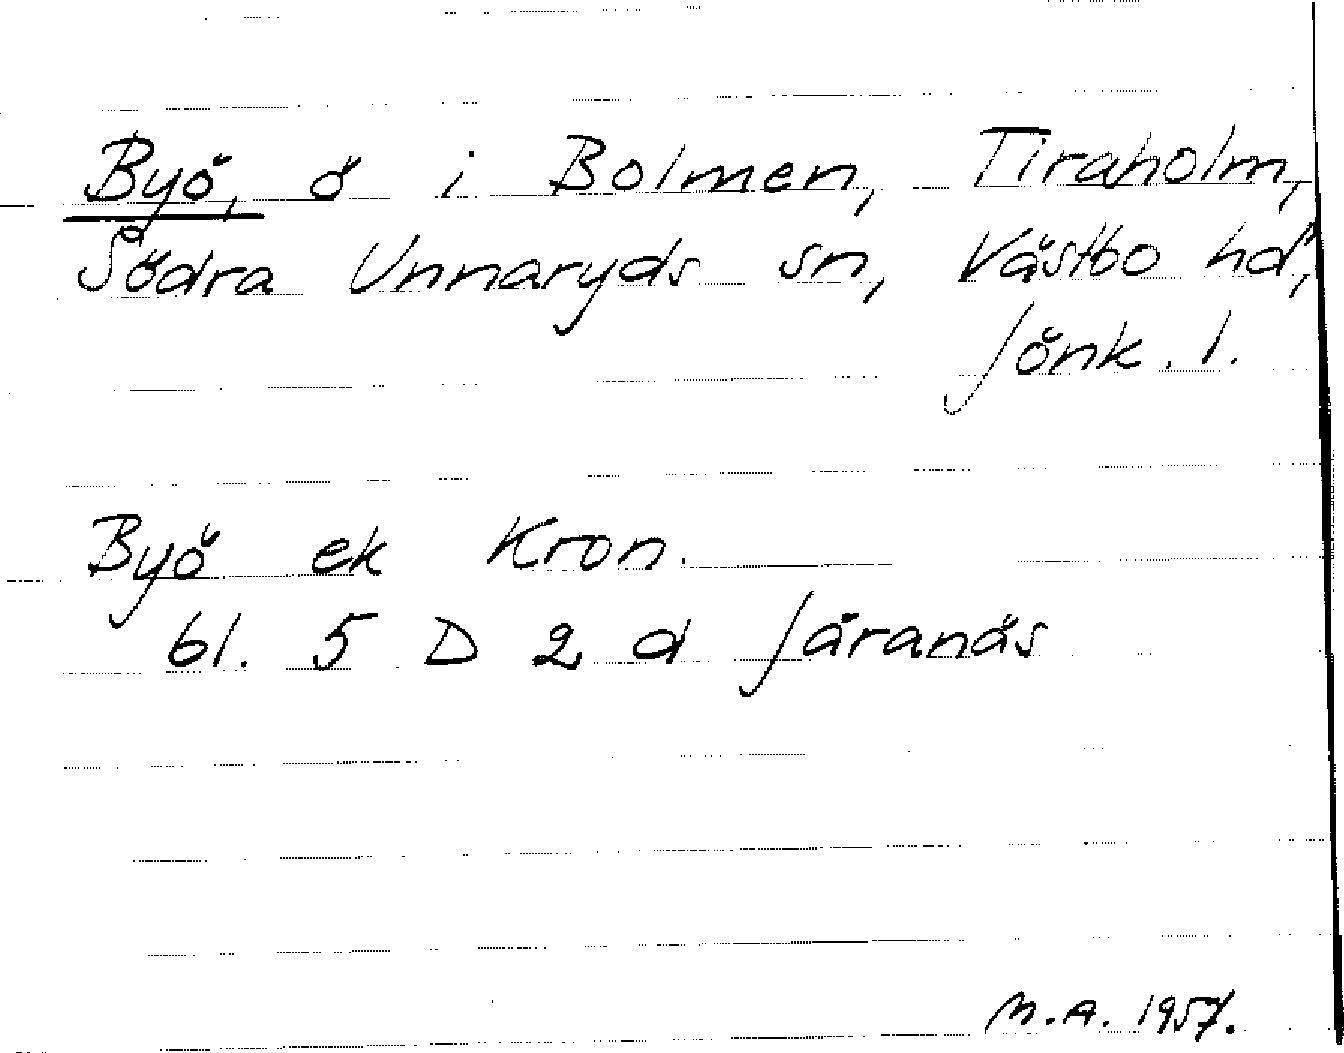 Byö, ö i Bolmen, Tiraholm,
Södra Unnaryds sn, Västbo hd,
Jönk. l.
Byö ek Kron.
bl. 5 D 2 d Järanäs
M.A. 1957.